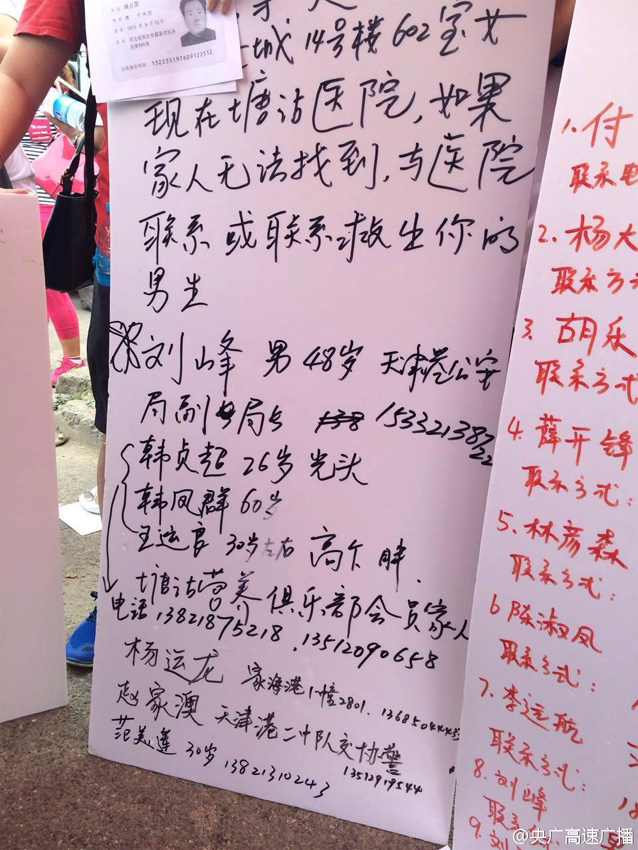 城 14号楼602室女
现在塘沽医院,如果
家人无法找到,与医院
联系或联系救生你的
男生
刘峰 男 48岁 天津港公安
局副局长 1533213872
韩贞超 26岁 光头
韩凤群 60岁
王运良 30岁左右 高个 胖.
塘沽 俱乐部会员家人
电话 13821875218. 13512090658
杨运龙 家海港1幢2801.
赵家澳 天津港二中队交协警
13512919544
范美莲 30岁 13821310243
1.付
联系电
2.杨大
联系方式
3.胡乐
联系方式
4.薛开锋
联系方式:
5.林彦森
联系方式:
6陈淑凤
联系方式:
7.李运航
联系方式:
8.刘峰
联系
9.刘
@央广高速广播